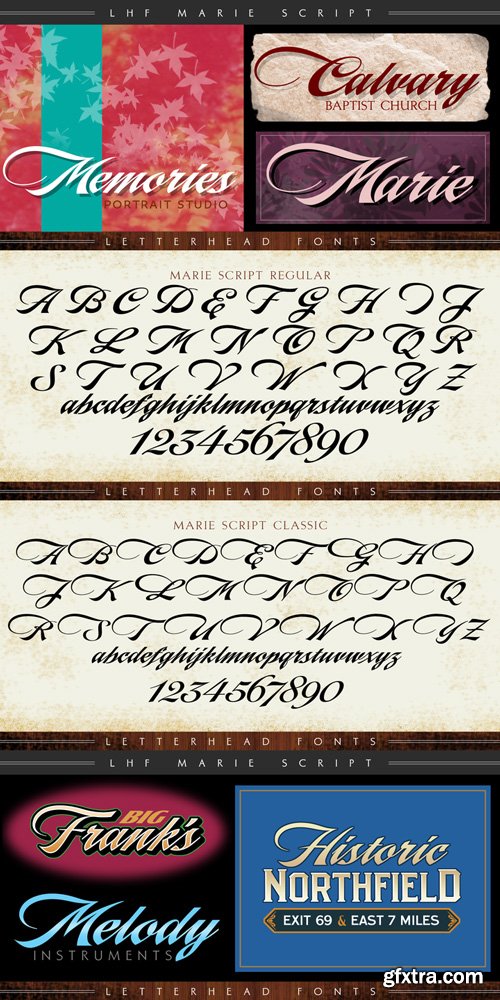 LHF MARIE SCRIPT
Memories
PORTRAIT STUDIO
Calvary
BAPTIST CHURCH
Marie
LETTERHEAD FONTS
MARIE SCRIPT REGULAR
A B C D E F G H I J
K L M N O P Q R
S T U V W X Y Z
abcdefghijklmnopqrstuvwxyz
1234567890
LETTERHEAD FONTS
MARIE SCRIPT CLASSIC
A B C D E F G H I
J K L M N O P Q
R S T U V W X Y Z
abcdefghijklmnopqrstuvwxyz
1234567890
LETTERHEAD FONTS
LHF MARIE SCRIPT
BIG
Frank's
Melody
INSTRUMENTS
Historic
NORTHFIELD
EXIT 69 & EAST 7 MILES
LETTERHEAD FONTS
gfxtra.com